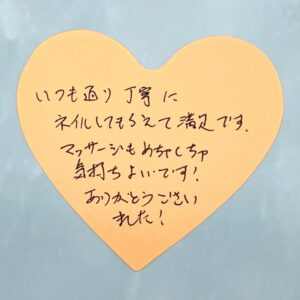 いつも通り丁寧に
ネイルしてもらえて満足です。
マッサージもめちゃくちゃ
気持ちよいです!
ありがとうござい
ました!